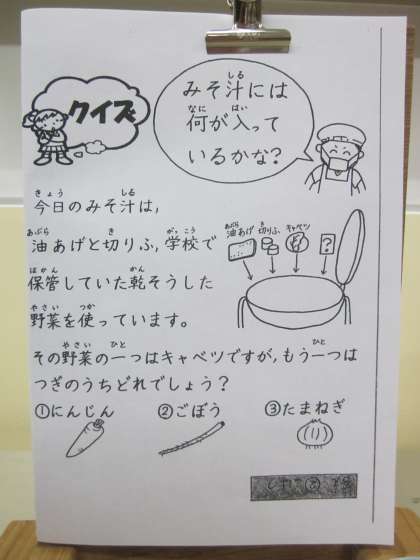 クイズ
みそ汁には
何が入って
いるかな?
今日のみそ汁は,
油あげと切りふ,学校で
保管していた乾そうした
野菜を使っています。
油あげ 切りふ キャベツ
?
その野菜の一つはキャベツですが,もう一つは
つぎのうちどれでしょう?
①にんじん ②ごぼう ③たまねぎ